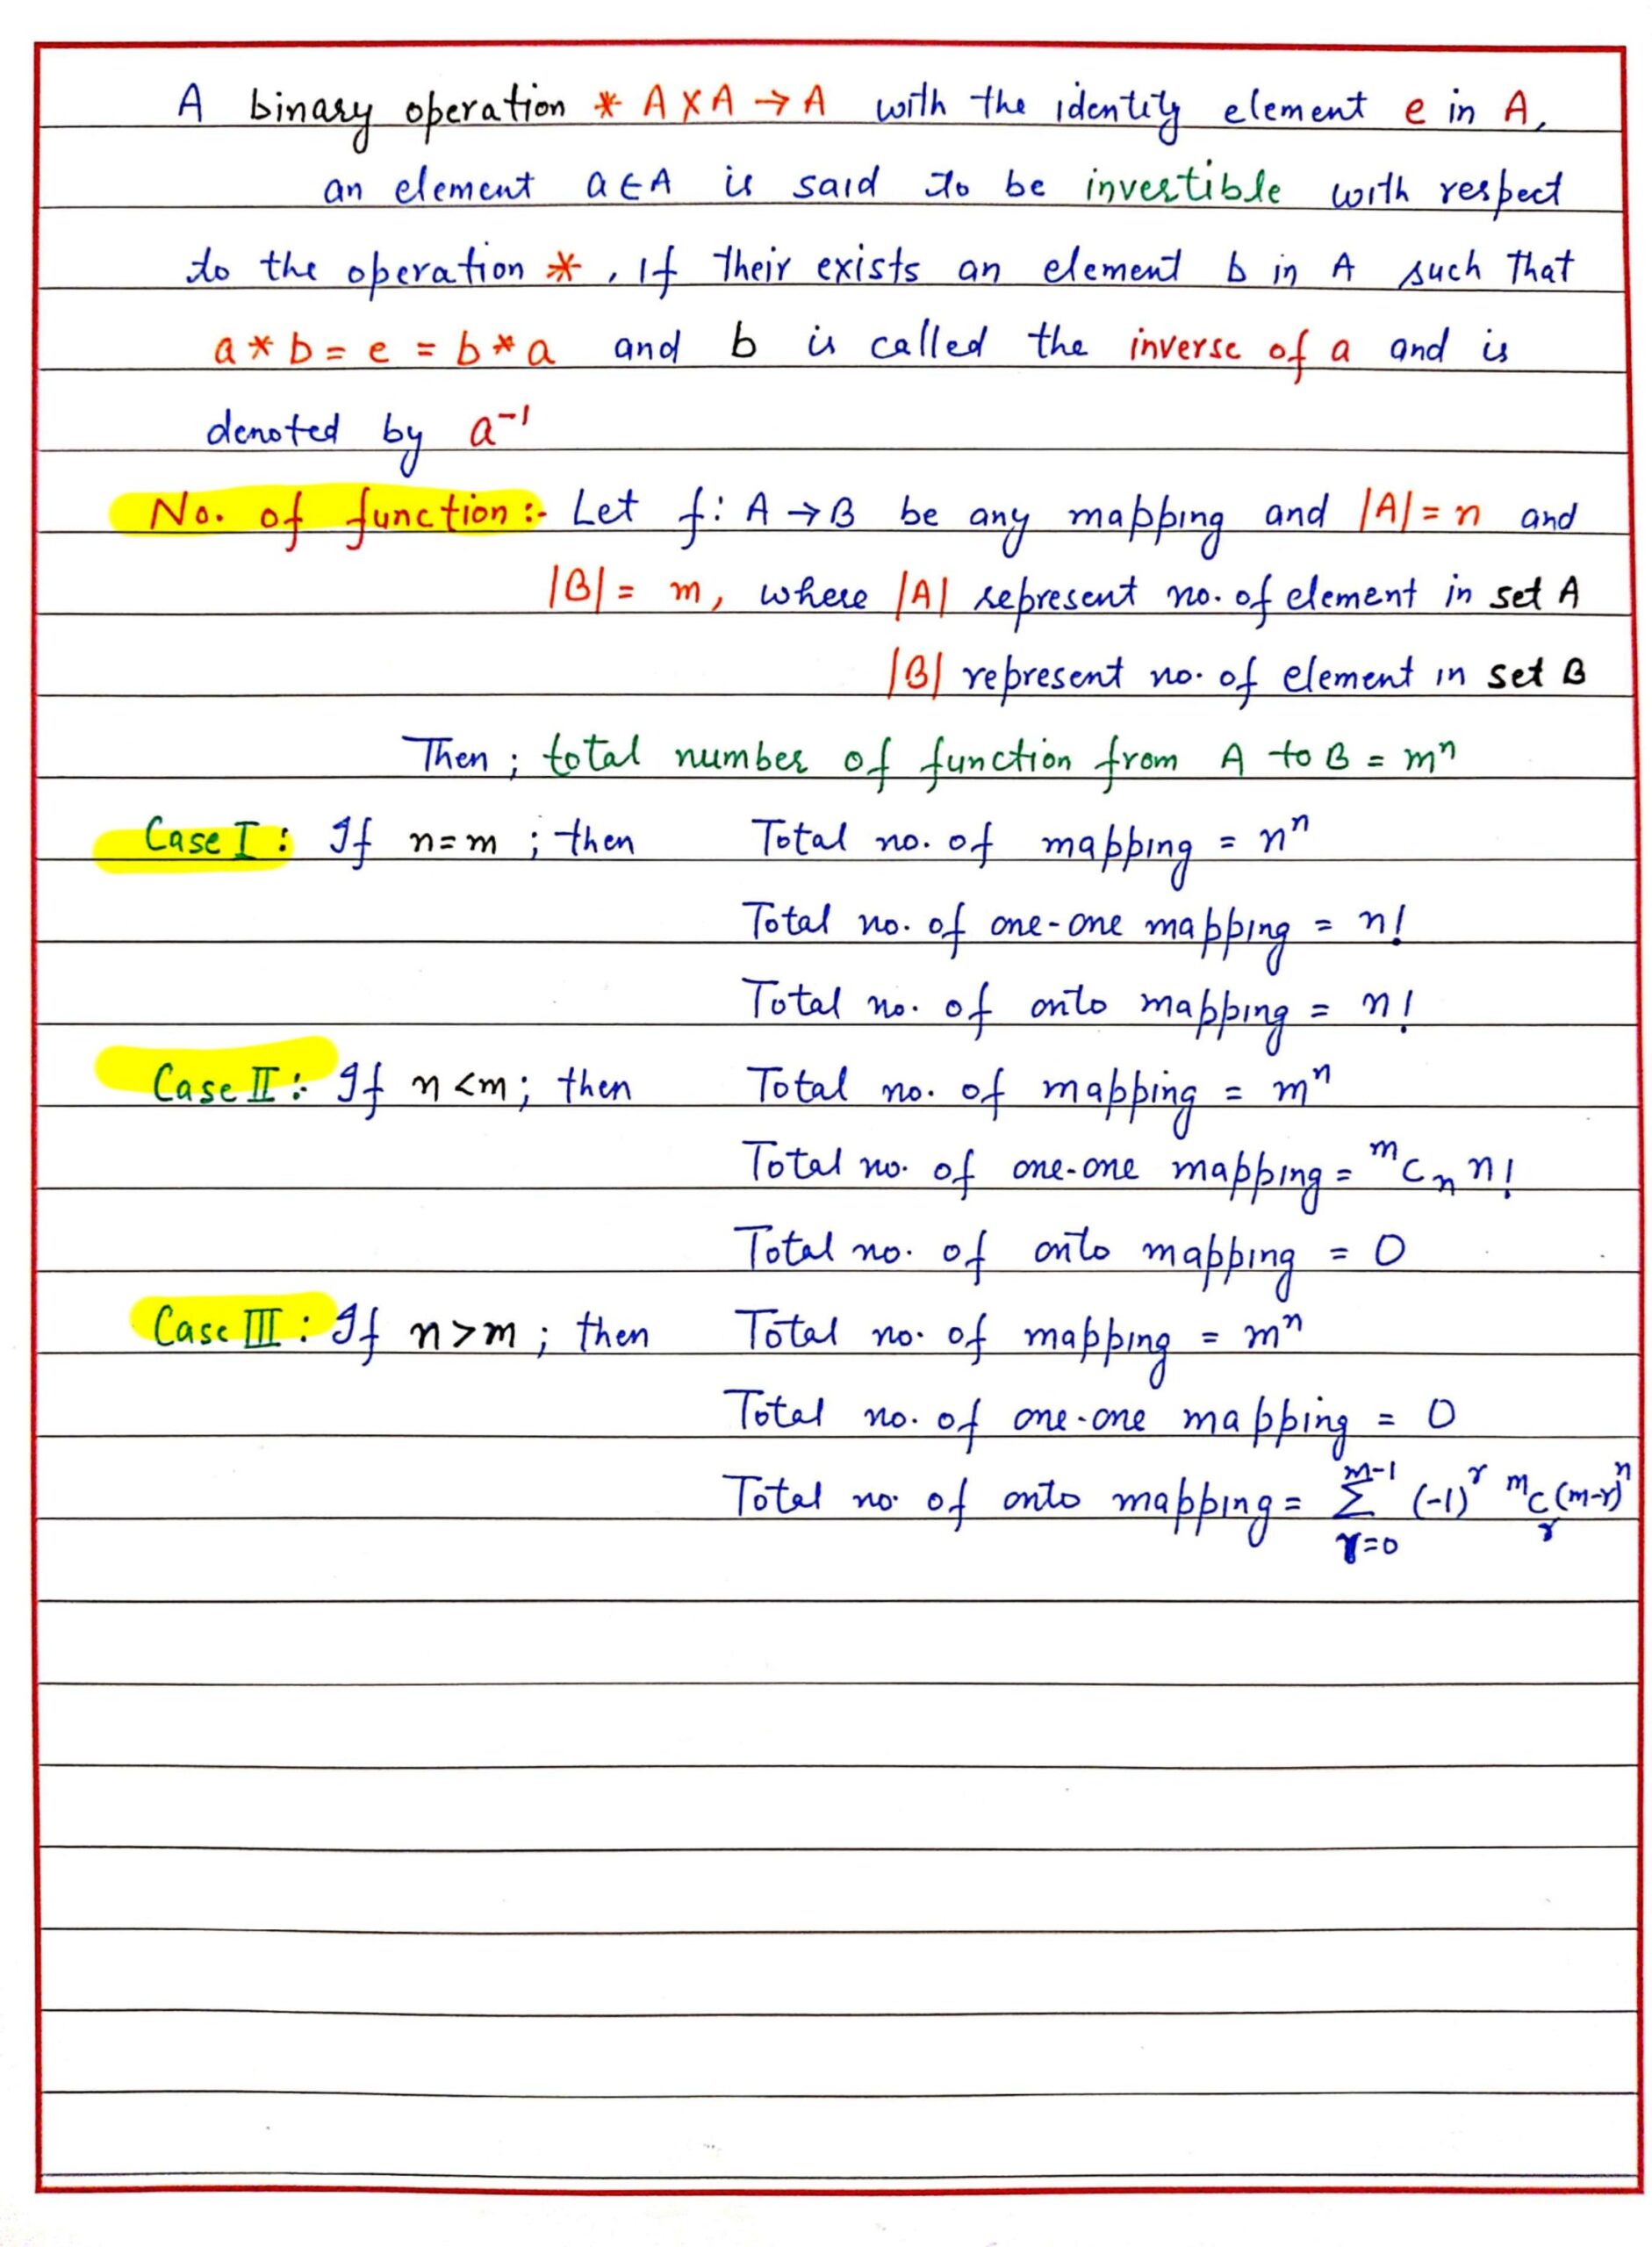 A binary operation * A×A → A with the identity element e in A,
an element a∈A is said to be invertible with respect
to the operation *, If their exists an element b in A such that
a * b = e = b * a and b is called the inverse of a and is
denoted by a⁻¹
No. of function :- Let f: A → B be any mapping and |A| = n and
|B| = m, where |A| represent no. of element in set A
|B| represent no. of element in set B
Then ; total number of function from A to B = mⁿ
Case I : If n=m ; then Total no. of mapping = nⁿ
Total no. of one-one mapping = n!
Total no. of onto mapping = n!
Case II : If n<m ; then Total no. of mapping = mⁿ
Total no. of one-one mapping = ᵐCₙ n!
Total no. of onto mapping = 0
Case III : If n>m ; then Total no. of mapping = mⁿ
Total no. of one-one mapping = 0
Total no. of onto mapping = m-1 Σ r=0 (-1)ʳ ᵐCᵣ (m-r)ⁿ